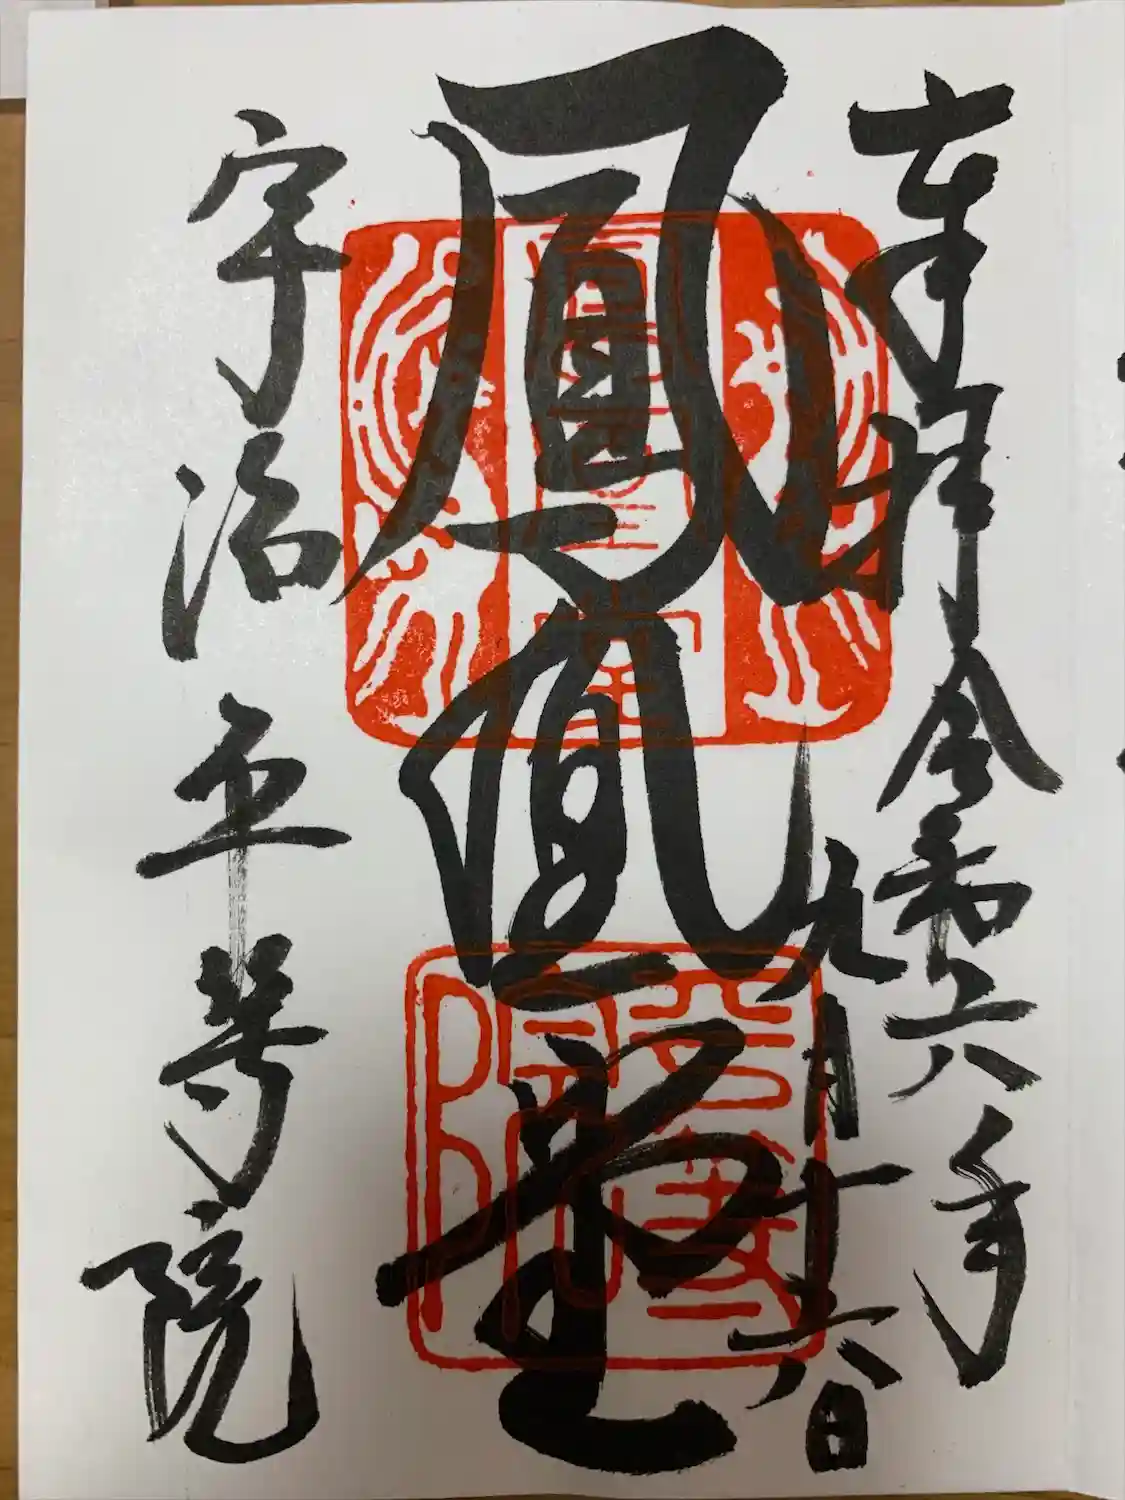 奉拝 令和六年
九月十六日
鳳凰堂
宇治 平等院